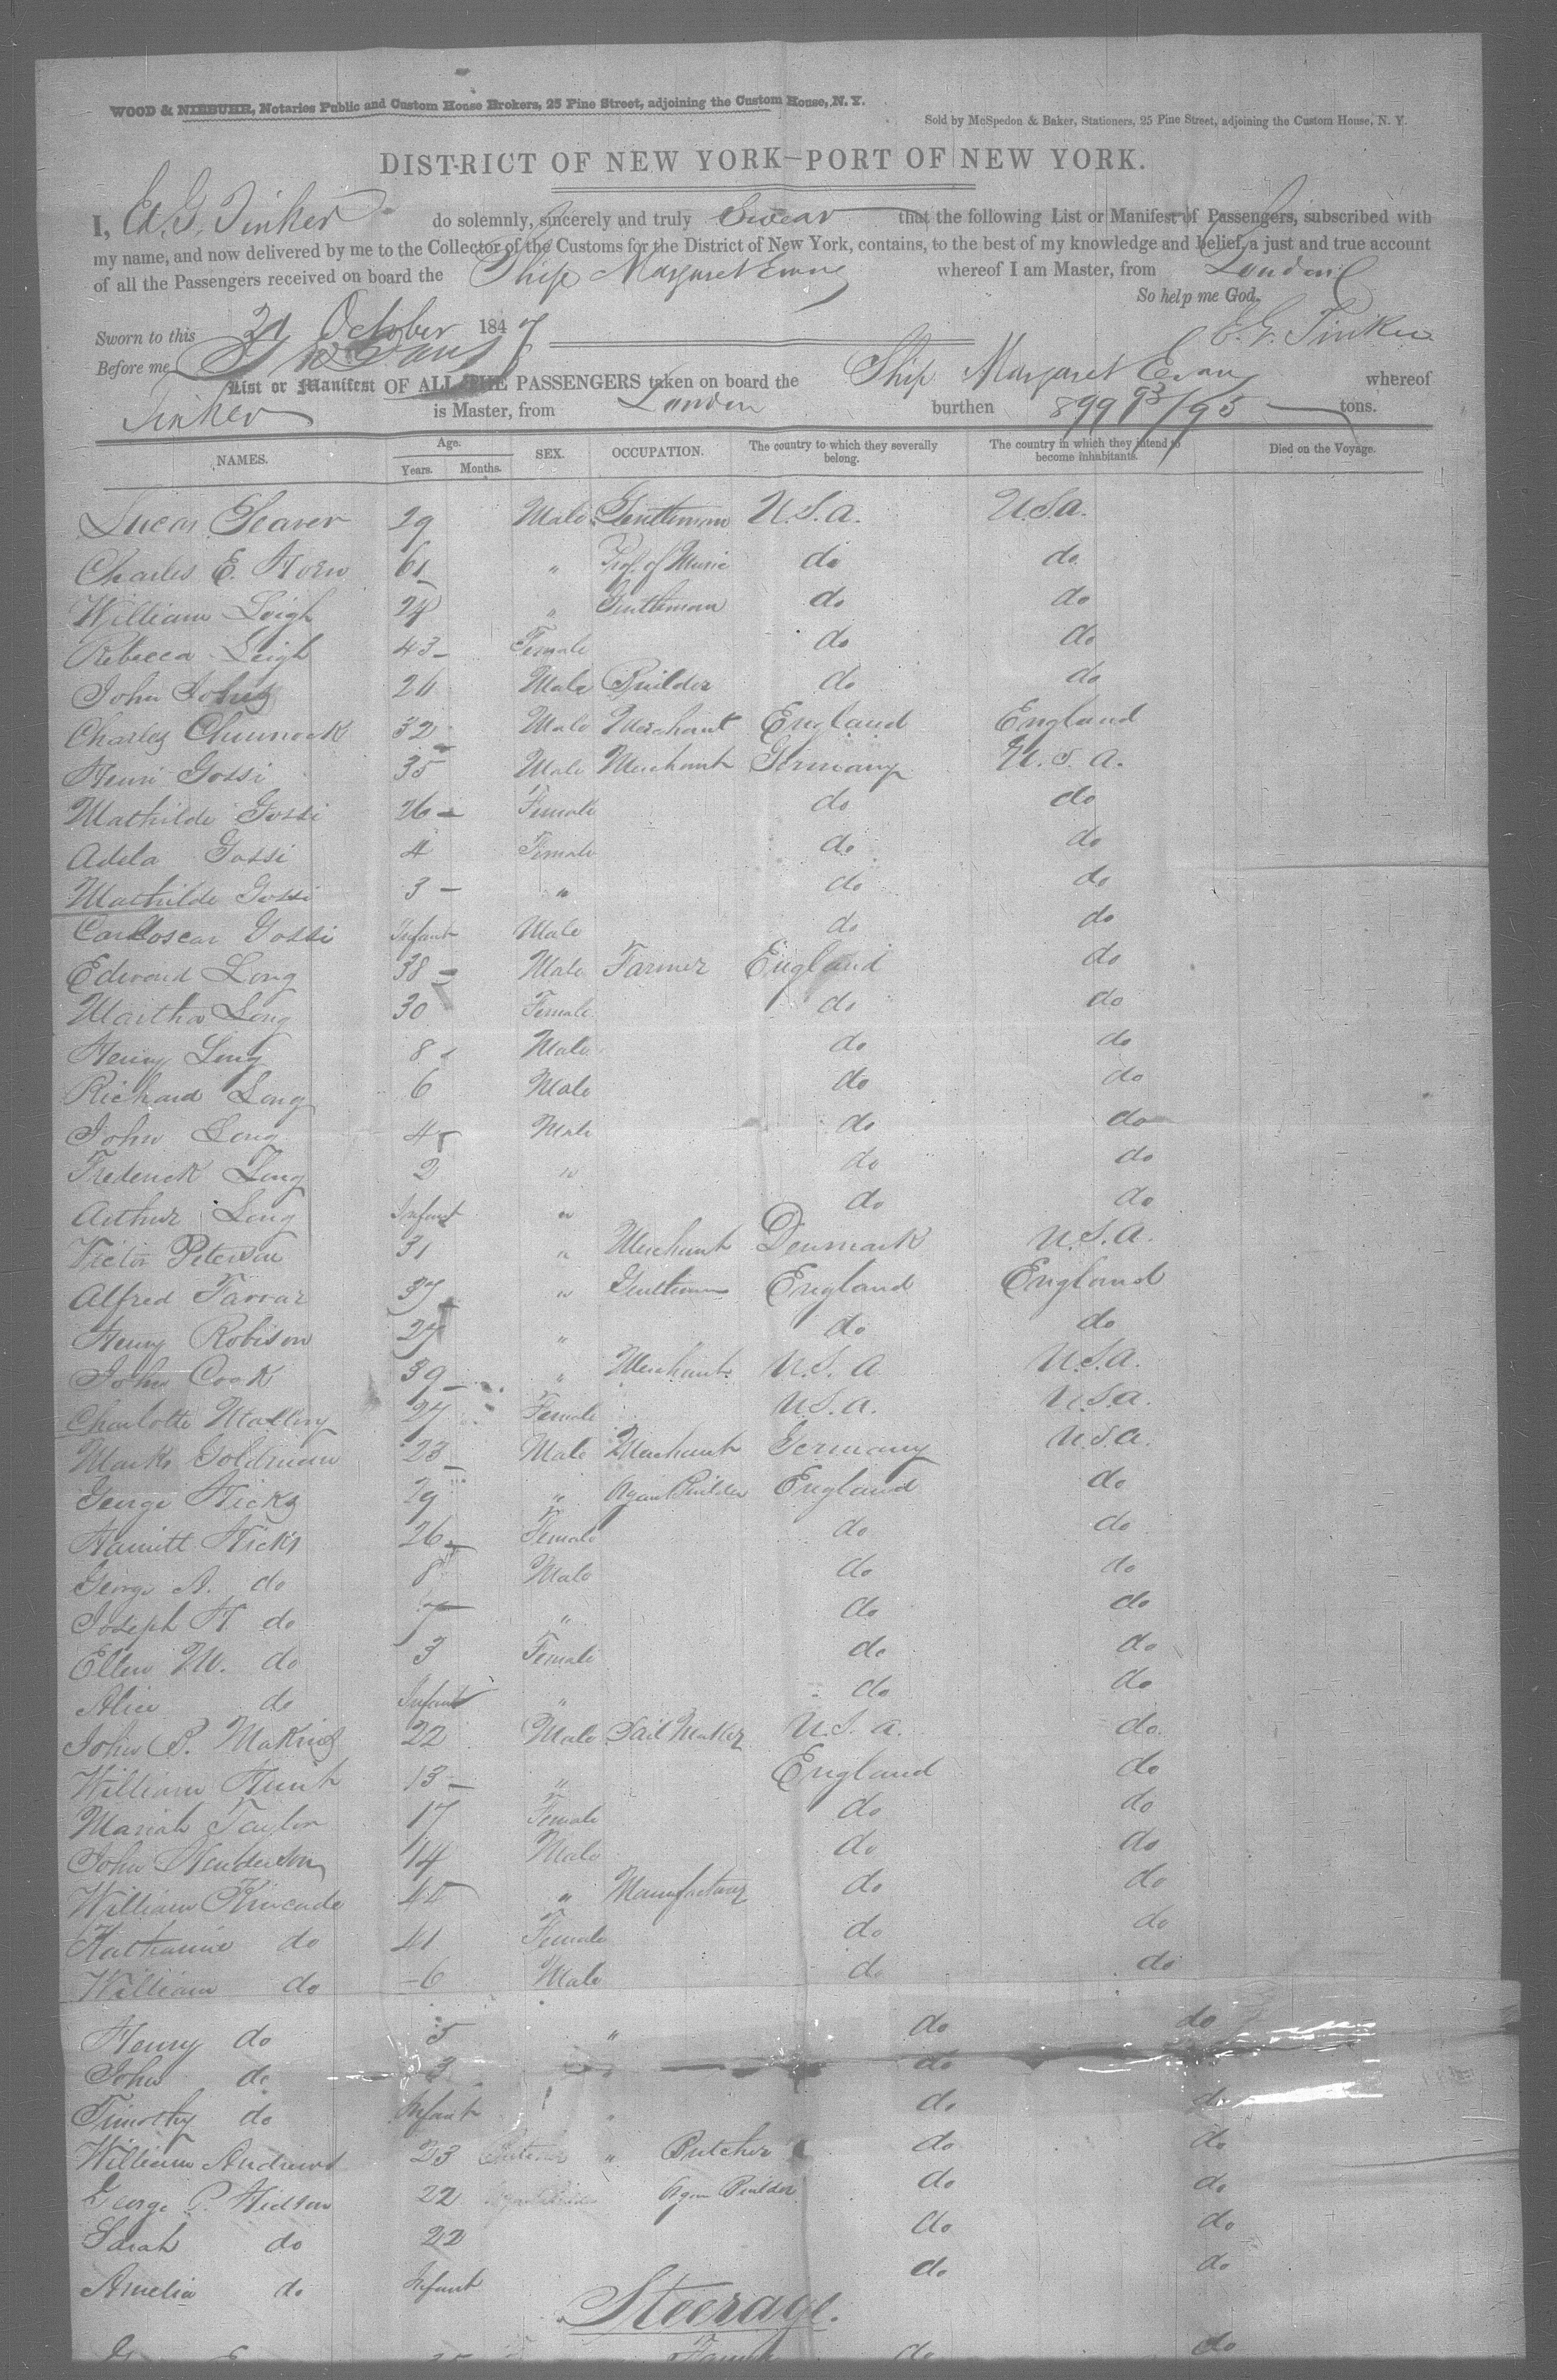 WOOD & NIEBUHR, Notaries Public and Custom House Brokers, 25 Pine Street, adjoining the Custom House, N. Y.
Sold by McSpedon & Baker, Stationers, 25 Pine Street, adjoining the Custom House, N. Y.
DISTRICT OF NEW YORK—PORT OF NEW YORK.
I, E. G. Tinker do solemnly, sincerely and truly Swear that the following List or Manifest of Passengers, subscribed with
my name, and now delivered by me to the Collector of the Customs for the District of New York, contains, to the best of my knowledge and belief, a just and true account
of all the Passengers received on board the Ship Margaret Evans whereof I am Master, from London
So help me God.
Sworn to this October 1847 E. G. Tinker
Before me
List or Manifest OF ALL THE PASSENGERS taken on board the Ship Margaret Evans whereof
Tinker is Master, from London burthen 899 93/95 tons.
NAMES. Age. Years. Months. SEX. OCCUPATION. The country to which they severally belong. The country in which they intend to become inhabitants. Died on the Voyage.
Lucas 29 Male Gentleman U.S.a. U.S.a.
Charles E. Horn 61 " Prof. of Music do do
William Leigh 24 " Gentleman do do
Rebecca Leigh 43 Female do do
John 26 Male Builder do do
Charles Chunnock 32 Male Merchant England England
Henri Gossi 35 Male Merchant Germany U.S.a.
Mathilde Gossi 26 Female do do
Adela Gossi 4 Female do do
Mathilde Gossi 3 " do do
Carl oscar Gossi Infant Male do do
Edward Long 38 Male Farmer England do
Martha Long 30 Female do do
Henry Long 8 Male do do
Richard Long 6 Male do do
John Long 4 Male do do
Frederick Long 2 " do do
Arthur Long Infant " do do
Victor Peterson 31 " Merchant Denmark U.S.a.
Alfred Farrar 37 " Gentleman England England
Henry Robison 27 " do do
John Cook 39 " Merchant U.S.a U.S.a.
Charlotte Mallery 27 Female U.S.a. U.S.a.
Marks Goldman 23 Male Merchant Germany U.S.a.
George Hicks 29 " Organ Builder England do
Harriett Hicks 26 Female do do
George A. do 8 Male do do
Joseph H. do 7 " do do
Ellen M. do 3 Female do do
Alice do Infant " do do
John P. 22 Male Sail Maker U.S.a. do
William Hunt 13 " England do
Mariah Taylor 17 Female do do
John Henderson 14 Male do do
William Kincade 45 " Manufacturer do do
Katharine do 41 Female do do
William do 6 Male do do
Henry do 5 " do do
John do 3 " do do
Timothy do Infant " do do
William Andrews 23 " Butcher do do
George P. Hidson 22 Organ Builder do do
Sarah do 22 do do
Amelia do Infant do do
Steerage.
do do